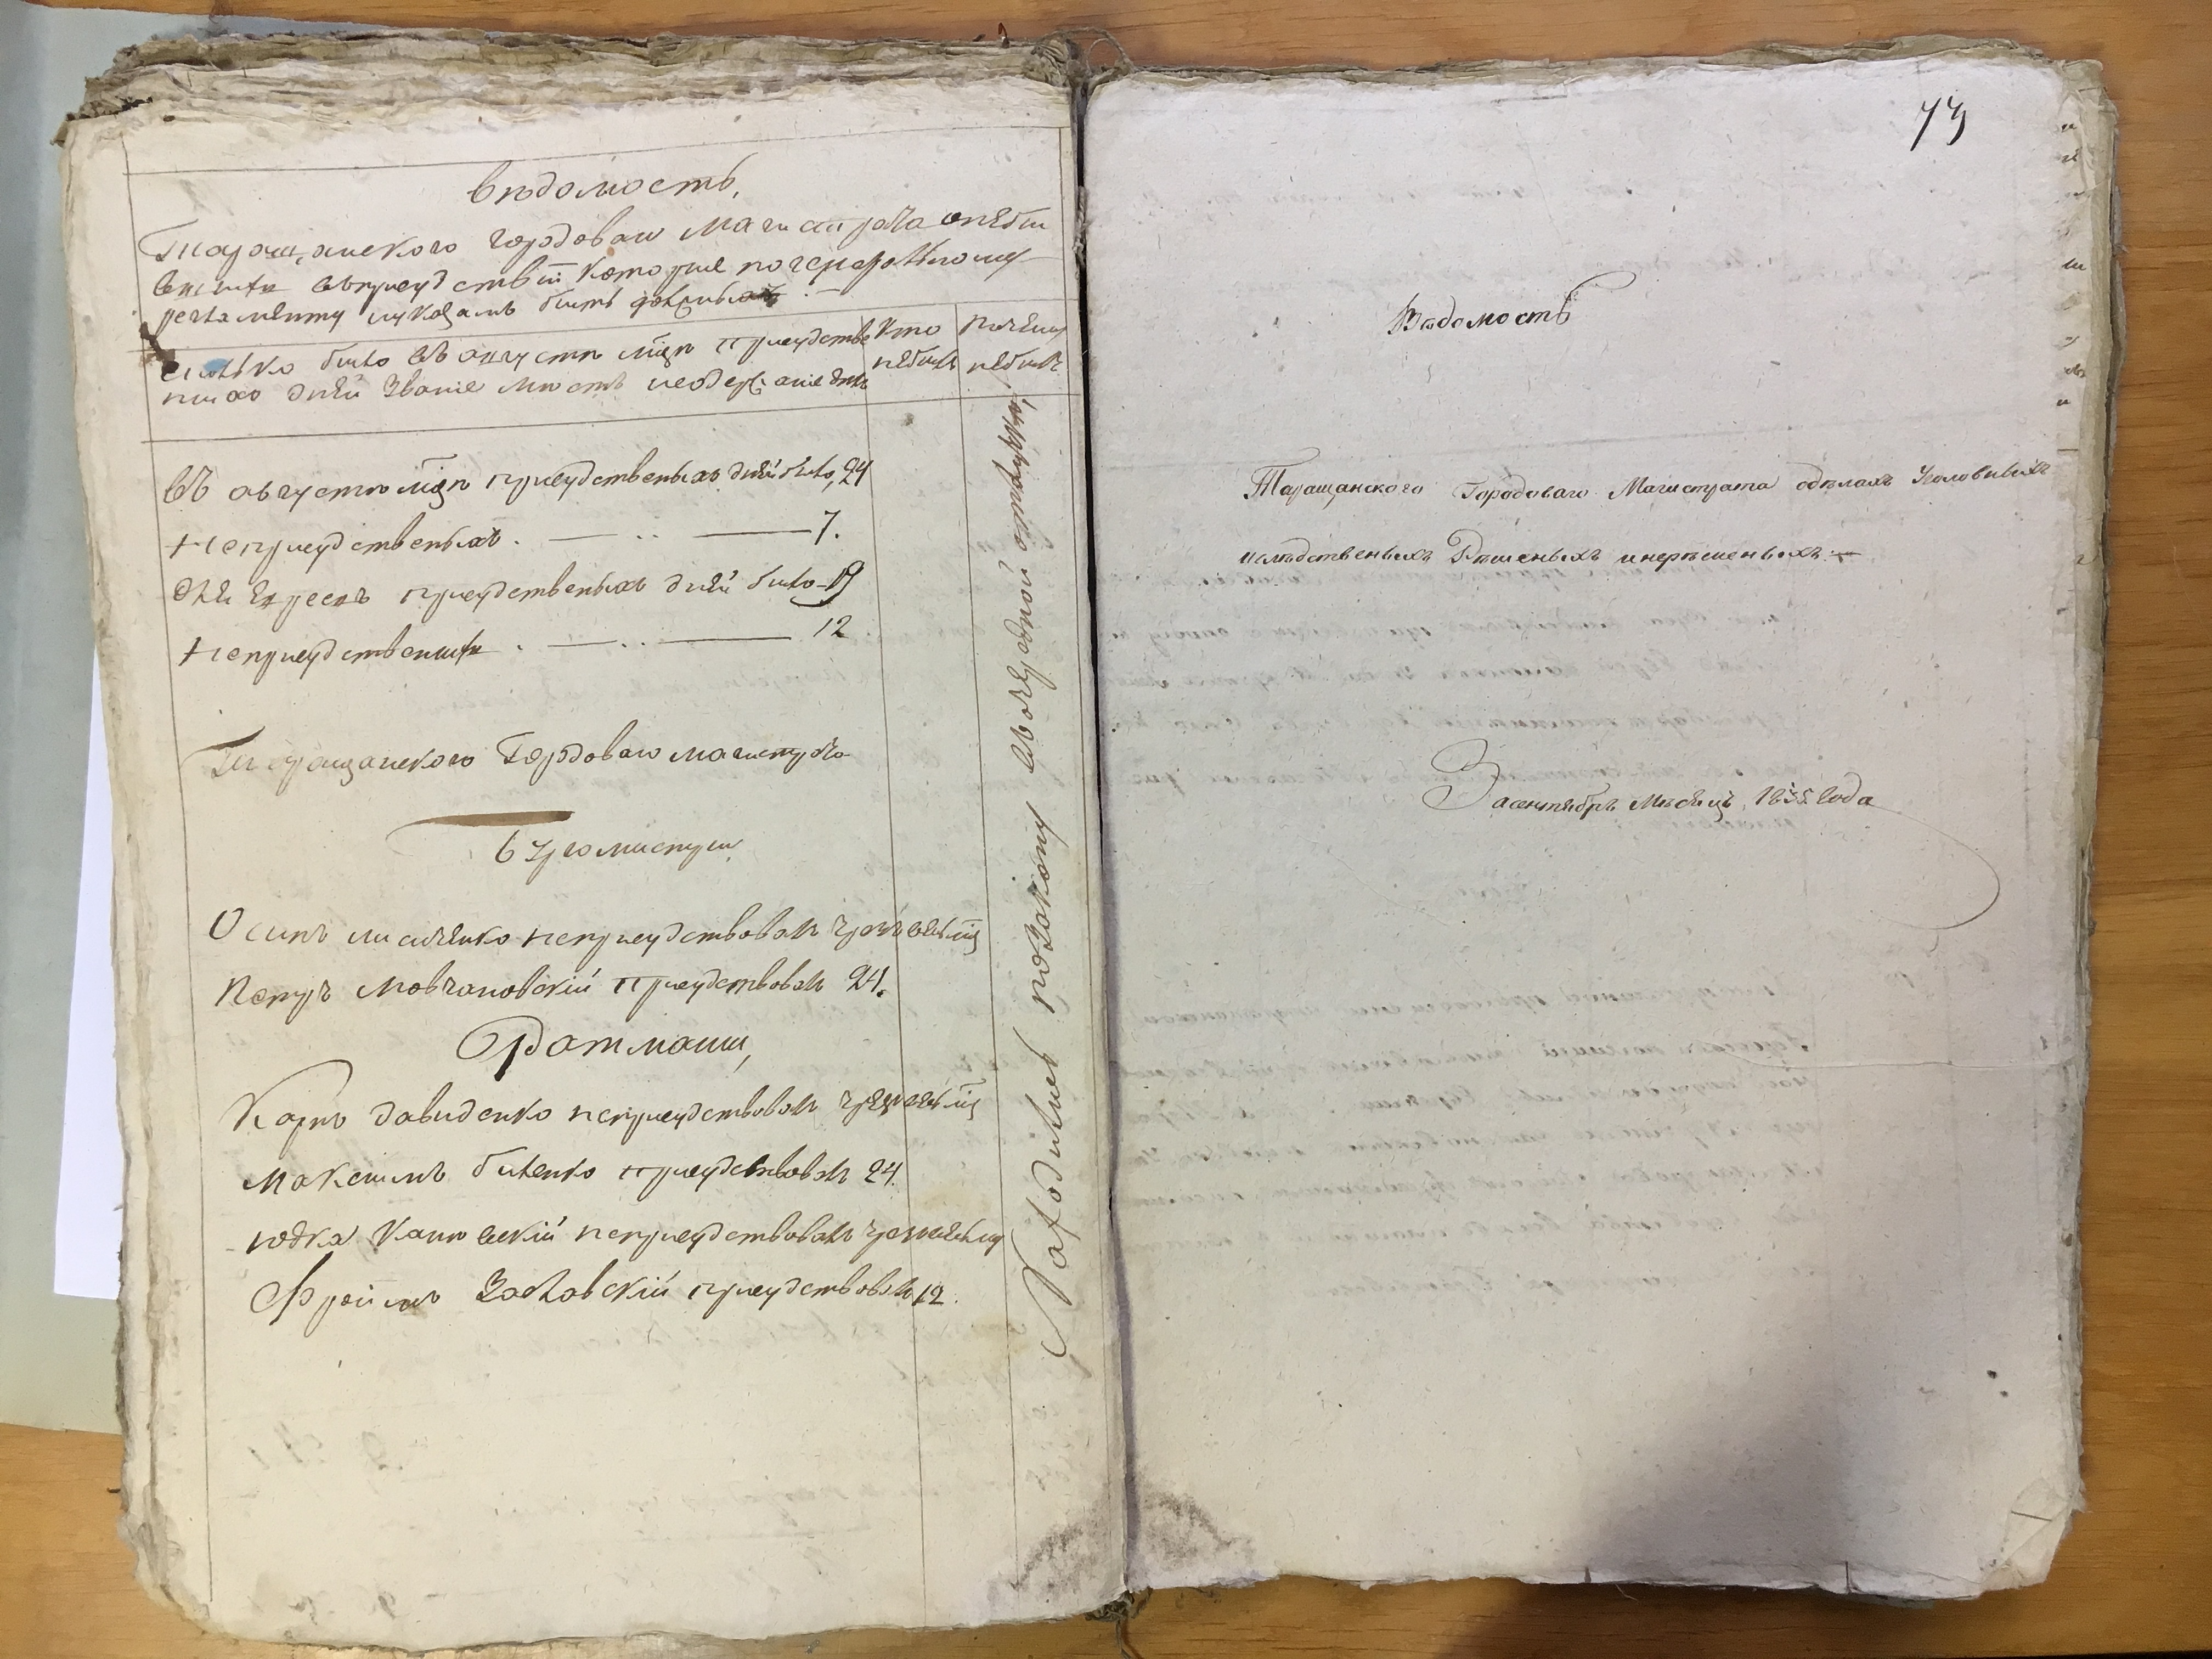 вѣдомость,
Таращанского городоваго Магистрата онебы
вшихъ въприсудствіи которые погенеральному
регламенту иуказамъ быть должны
сколько было въ августѣ мцѣ присудстве
ныхъ дней
Кто небылъ
Почему небылъ
въ августѣ мцѣ присудственыхъ дней было, 24
Неприсудственыхъ . — .. — 7.
для Евреевъ присудственыхъ дней было 19
Неприсудственыхъ . — .. — 12.
Таращанского Городоваго магистрата
Бургомистры
Осипъ лисиченко неприсудствовалъ
Петръ Мовчановскій присудствовалъ 24.
Ратманы,
Карпъ давиденко неприсудствовалъ
Максимъ биленко присудствовалъ 24.
юдка Каневскій неприсудствовалъ
Фроимъ Заславскій присудствовалъ 12.
Находились позакону вочередной отлучке,
73
Вѣдомость
Таращанского Городоваго Магистрата одѣлахъ Уголовныхъ
ислѣдственыхъ Рѣшеныхъ инерѣшеныхъ.—
Засентябрь Мѣсяцъ 1835 года